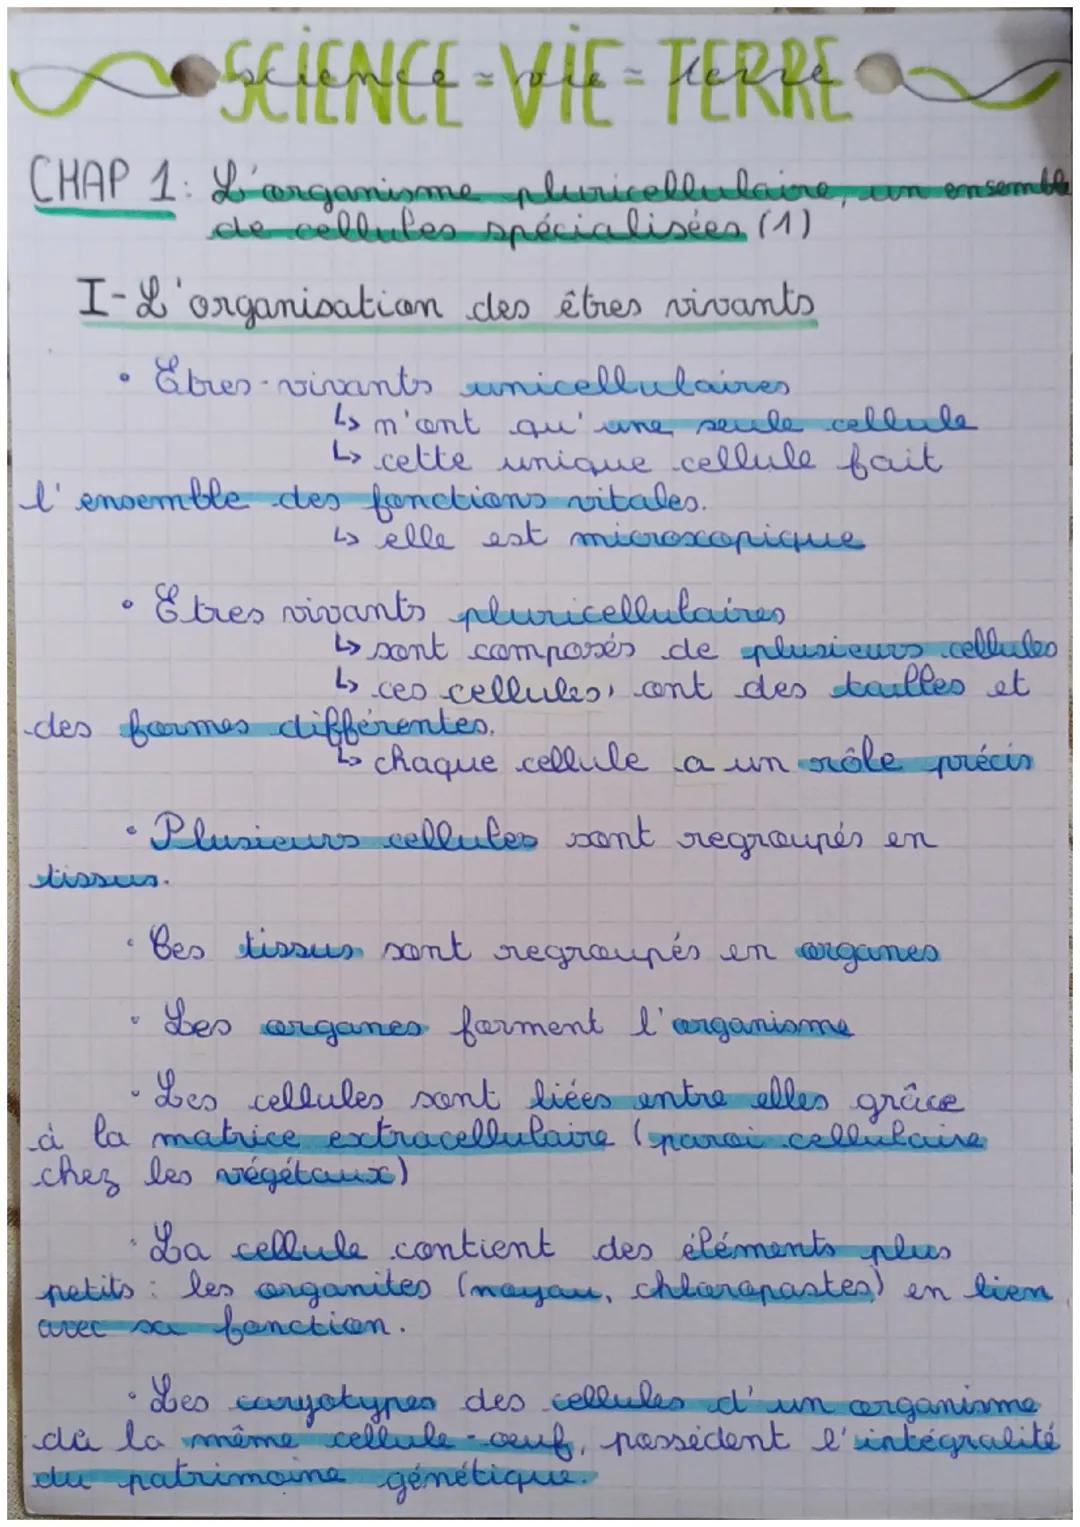 SCIENCE - VIE - TERRE
science - vie - terre
CHAP 1: L'organisme pluricellulaire, un ensemble
de cellules spécialisées (1)
I- L'organisation des êtres vivants
• Êtres-vivants unicellulaires
↳ n'ont qu'une seule cellule
↳ cette unique cellule fait
l'ensemble des fonctions vitales.
↳ elle est microscopique
• Êtres vivants pluricellulaires
↳ sont composés de plusieurs cellules
↳ ces cellules, ont des tailles et
des formes différentes.
↳ chaque cellule a un rôle précis
• Plusieurs cellules sont regroupés en
tissus.
• Ces tissus sont regroupés en organes
• Les organes forment l'organisme
• Les cellules sont liées entre elles grâce
à la matrice extracellulaire (paroi cellulaire
chez les végétaux)
• La cellule contient des éléments plus
petits : les organites (noyau, chloropastes) en lien
avec sa fonction.
• Les caryotypes des cellules d'un organisme
dû la même cellule-oeuf, possèdent l'intégralité
du patrimoine génétique.